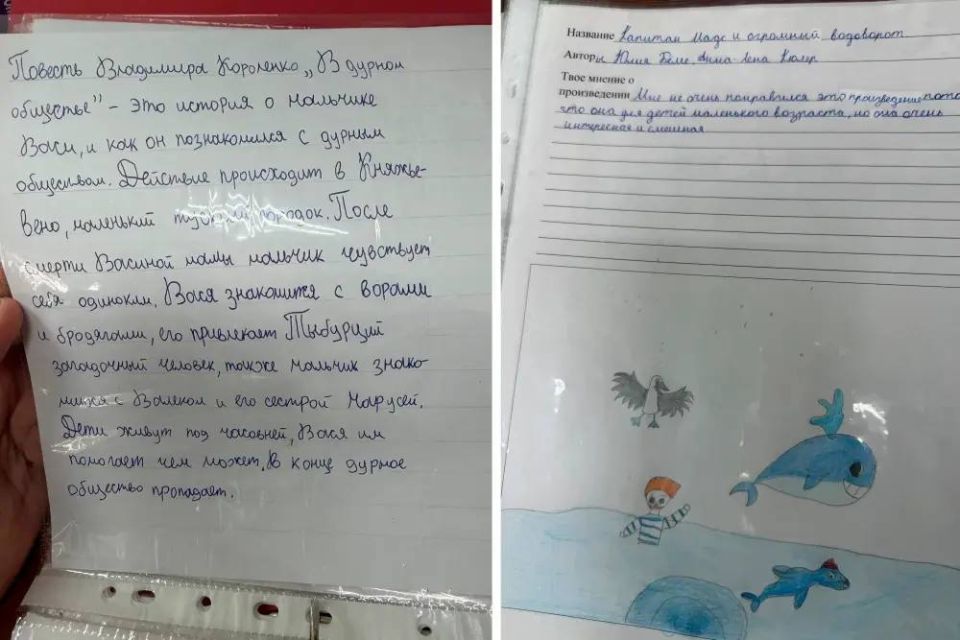 Повесть Владимира Короленко „В дурном
обществе" – это история о мальчике
Васи, и как он познакомился с дурным
обществом. Действие происходит в Княжье-
вено, маленький городок. После
смерти Васиной мамы мальчик чувствует
себя одиноким. Вася знакомится с ворами
и бродягами, его привлекает Тыбурций
загадочный человек, также мальчик знако-
мится с Валеком и его сестрой Марусей.
Дети живут под часовней, Вася им
помогает чем может. В конце дурное
общество пропадает.
Название Капитан Мадс и огромный водоворот
Авторы Юлия Бёме,
Твое мнение о
произведении Мне не очень понравился это произведение пото
что она для детей маленького возраста, но она очень
интересная и смешная